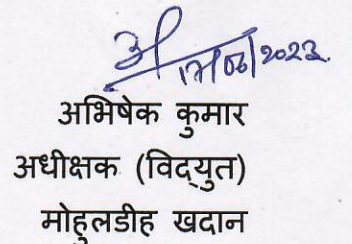 अ
17/06/2023
अभिषेक कुमार
अधीक्षक (विद्युत)
मोहुलडीह खदान